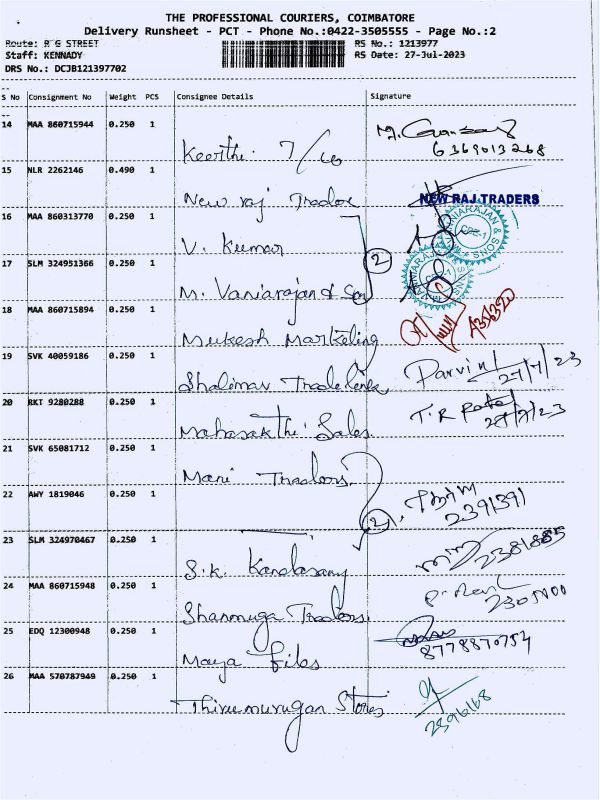 THE PROFESSIONAL COURIERS, COIMBATORE
Delivery Runsheet - PCT - Phone No.:0422-3505555 - Page No.:2
Route: R G STREET
RS No.: 1213977
Staff: KENNADY
RS Date: 27-Jul-2023
DRS No.: DCJB121397702
S No Consignment No Weight PCS Consignee Details Signature
14 MAA 860715944 0.250 1
Keerthi. 7/10
6369013268
15 NLR 2262146 0.490 1
New raj Trader
NEW RAJ TRADERS
16 MAA 860313770 0.250 1
V. Kumar
17 SLM 324951366 0.250 1
2
M. Vaniarajan & Son
18 MAA 860715894 0.250 1
Mukesh Marketing
A356320
19 SVK 40059186 0.250 1
Shalimar Tradelinks
Parvin
27/7/23
20 RKT 9280288 0.250 1
Mahasakthi Sales
T.R
27/7/23
21 SVK 65081712 0.250 1
Mani Traders
22 AWY 1819046 0.250 1
2
2391391
23 SLM 324970467 0.250 1
S.K. Kandasamy
2381885
24 MAA 860715948 0.250 1
Shanmuga Traders
25 EDQ 12300948 0.250 1
Maya Files
8778870754
26 MAA 570787949 0.250 1
Thirumurugan Stores
2396168